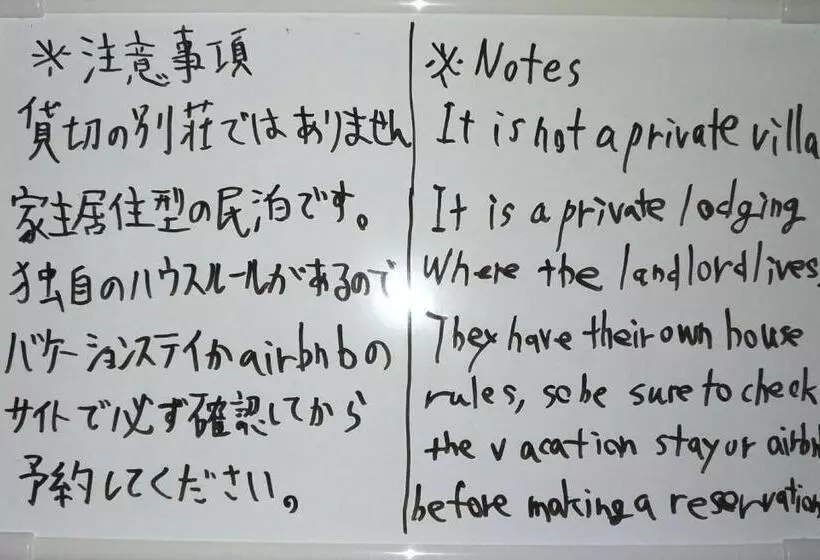 ※注意事項
貸切の別荘ではありません
家主居住型の民泊です。
独自のハウスルールがあるので
バケーションステイかairbnbの
サイトで必ず確認してから
予約してください。
※Notes
It is not a private villa
It is a private lodging
Where the landlord lives.
They have their own house
rules, so be sure to check
the vacation stay or airbn
before making a reservation